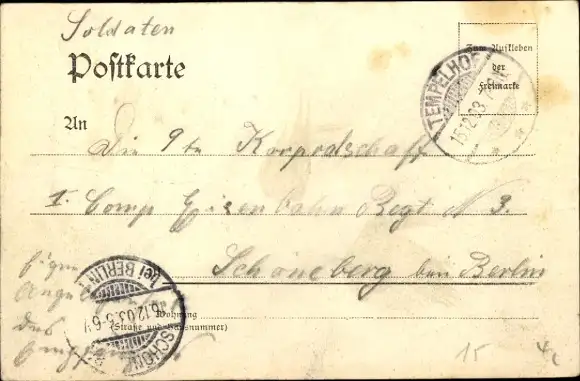 Soldaten
Postkarte
Zum Aufkleben
der
Freimarke
TEMPELHOF
15.12.03
An
Die 9te Korporalschaft
I. Comp Eisenbahn Regt N 3.
Schöneberg bei Berlin
Wohnung
(Straße und Hausnummer)
(bei BERLIN)
16.12.03.5-6
SCHÖN
Eigene
Ange
des
15